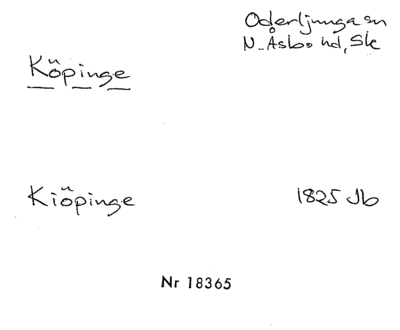 Oderljunga sn
N. Åsbo hd, Sk
Köpinge
Kiöpinge
1825 Jb
Nr 18365